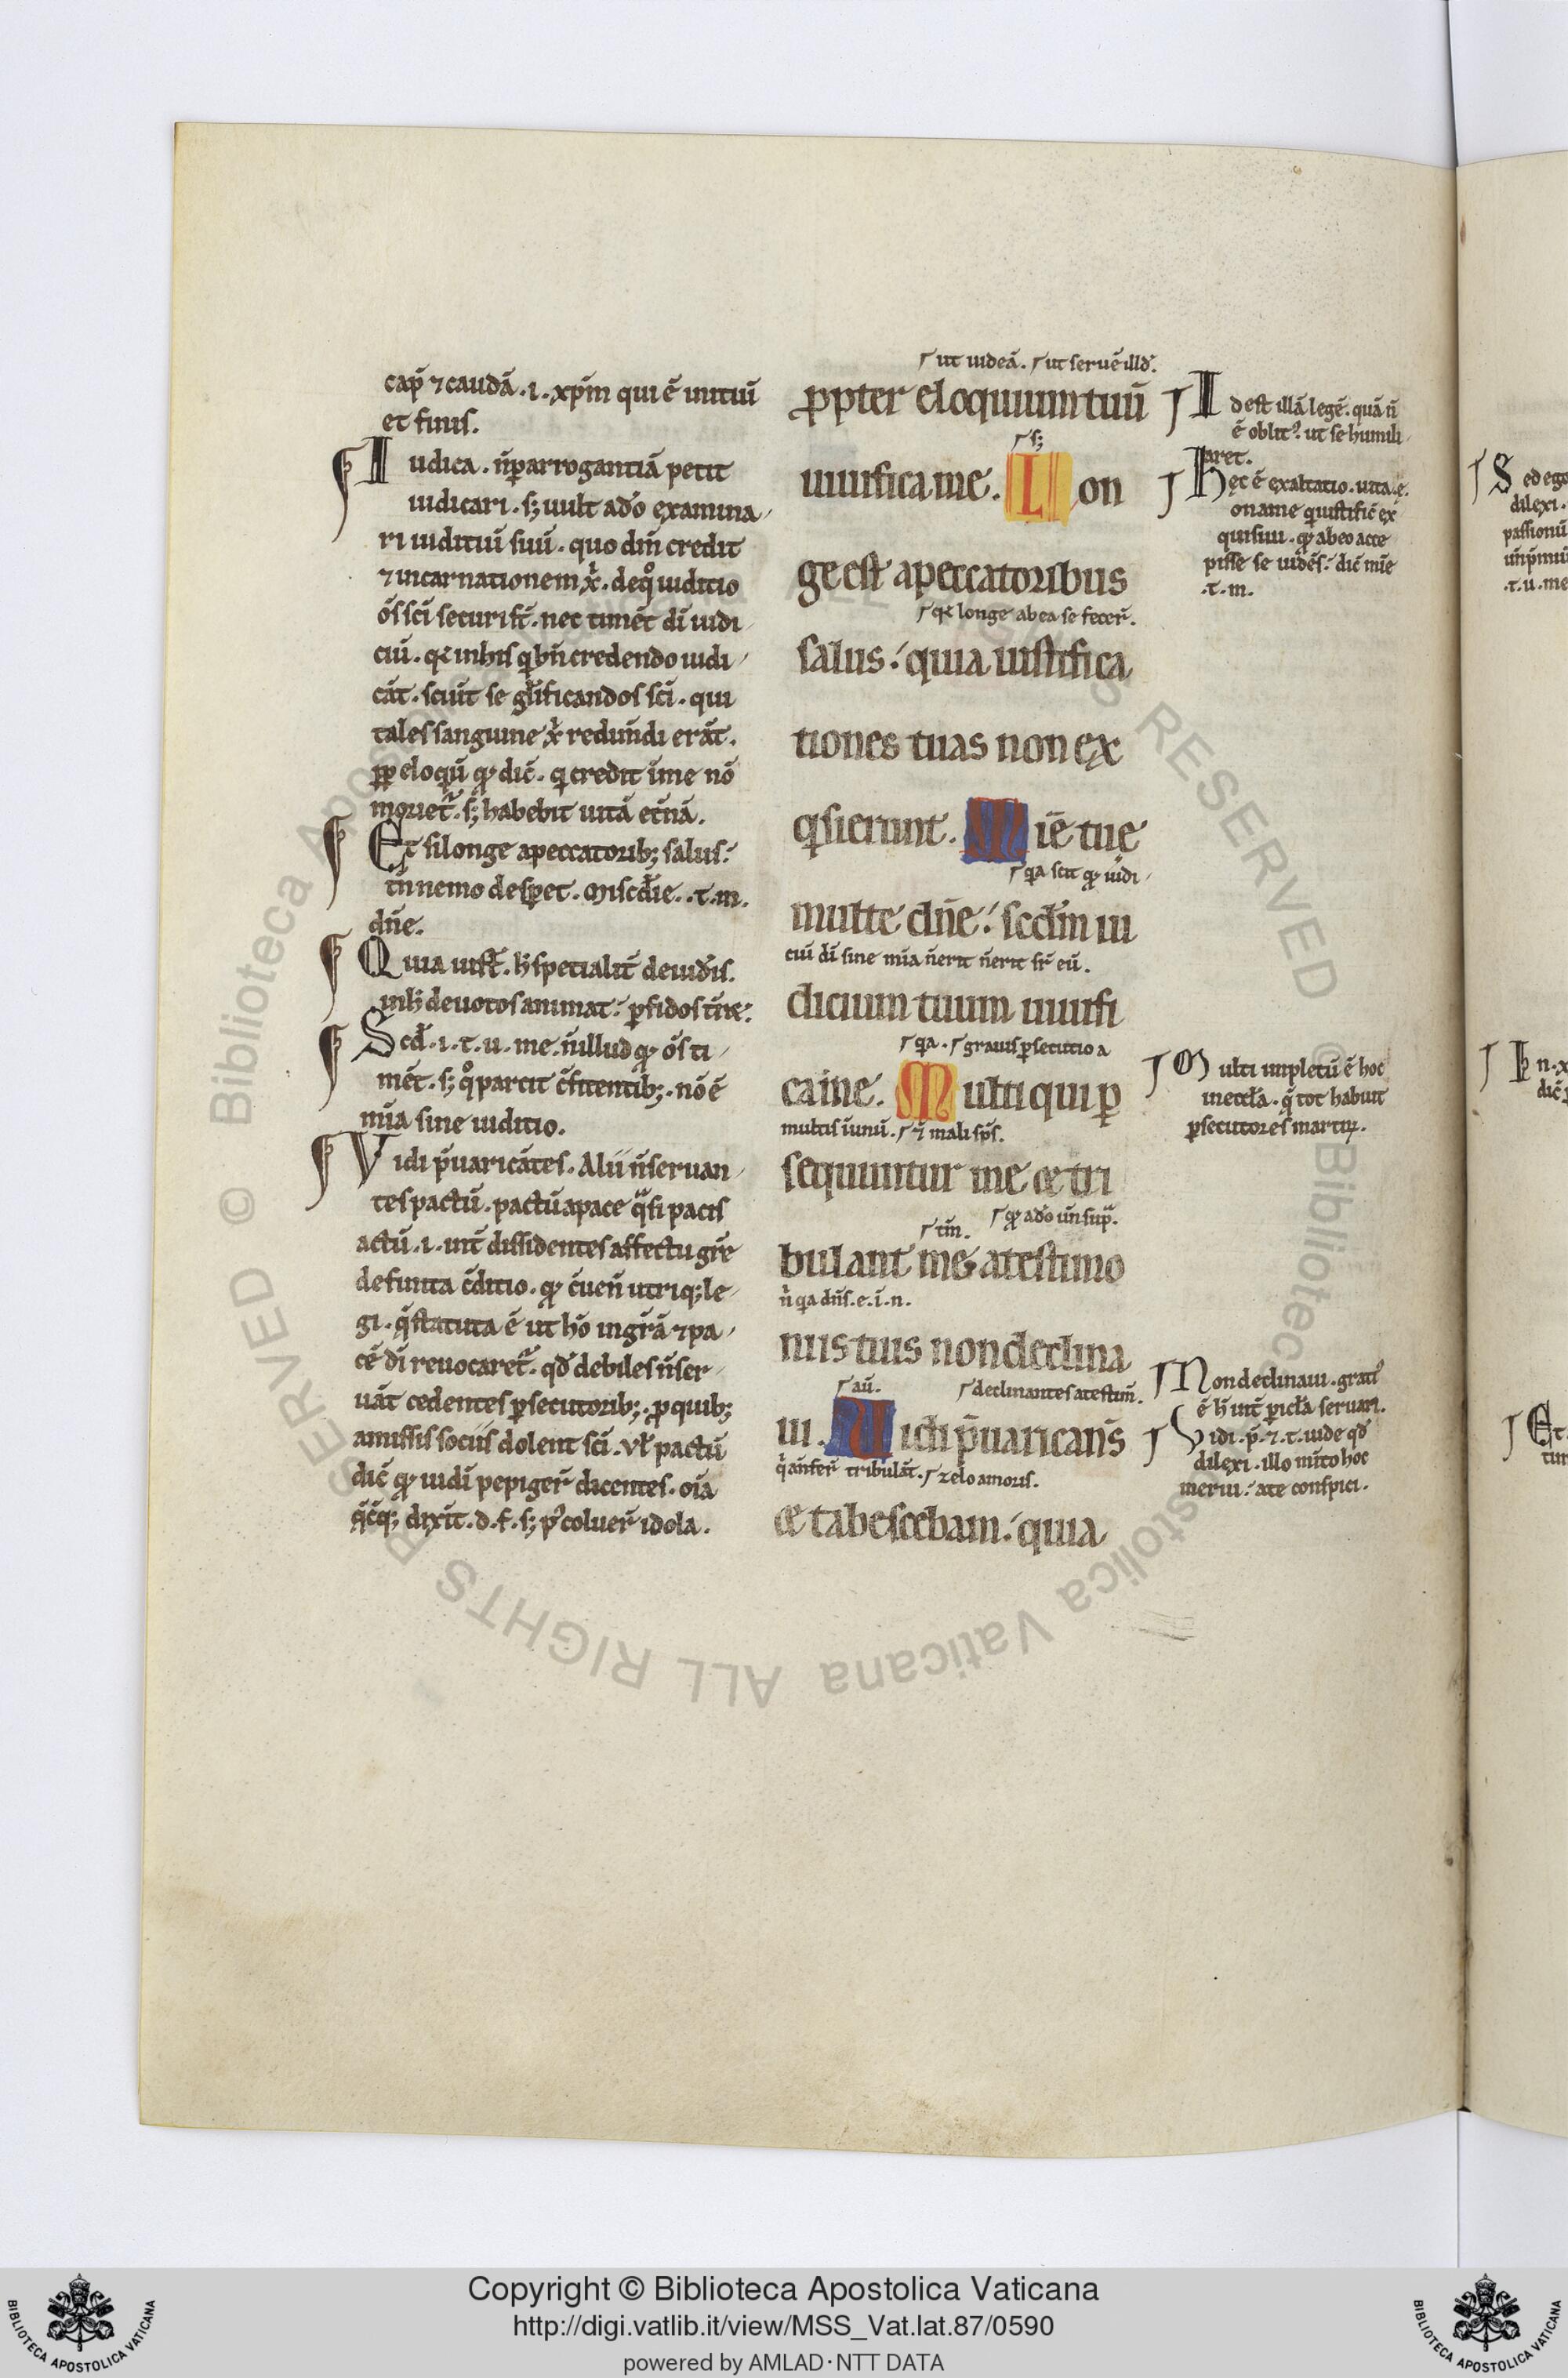 cap̄ ⁊ caudā .i. xp̄m qui ē initiū
et finis.
Iudica . n̄ p arrogantiā petit
iudicari . sꝫ uult a dō examina
ri iuditiū suū . quo dn̄i credit
⁊ incarnationem xp̄i . de qͦ iuditio
ōs sc̄i securi st̄ . nec timēt dī iudi
ciū . qꝛ in his q bn̄ credendo iudi
cāt . sciūt se gl̄ificandos sc̄i . qui
tales sanguine xp̄i redim̄di erāt .
pp eloqū qꝫ dic̄ . q credit ī me nō
moriet̄ . sꝫ habebit uitā et̄nā .
Et si longe a peccatoribꝫ salus :
tn̄ nemo despet . Misc̄die . t . m .
dn̄e .
Quia iust̄ . h̄ specialit̄ de iud̄is .
in h̄ deuotos animat : pfidos t̄ret :
Scd̄ . i . t . u . me . n̄ illud qꝫ ōs ti
mēt . sꝫ qͦ parcit c̄fitentibꝫ . nō ē
mīa sine iuditio .
Vidi p̄uaricātes . Alii n̄ seruan
tes pactū . pactū a pace q̄si pacis
actū .i. int̄ dissidentes affectu gr̄e
definita c̄ditio . qꝫ c̄uen̄ utriqꝫ le
gi . q̄ statuta ē ut hō in gr̄ā ⁊ pa
cē dī reuocaret̄ . qd̄ debiles n̄ ser
uāt cedentes psecutoribꝫ . p quibꝫ
amissis sociis dolent sc̄i . vl̄ pactū
dic̄ qꝫ iudī pepiger̄ dicentes . oīa
q̄c̄qꝫ dixit . d . f . sꝫ p̄ coluer̄ idola .
ut uideā . ut seruē illd̄ .
ppter eloquium tuū
sꝫ
uiuifica me . Lon
ge est a peccatoribus
qꝛ longe ab ea se fecer̄ .
salus : quia iustifica
tiones tuas non ex
qsierunt . Mīe tue
qa scit qꝫ iudi
multe dn̄e : scd̄m iu
ciū dī sine mīa n̄ erit n̄ erit sr̄ eū .
dicium tuum uiuifi
qa . grauis psecutio a
ca me . Multi qui p
multis īiunū . ⁊ mali sp̄s .
sequuntur me et tri
tm̄ . qꝫ a dō un̄ sup̄ .
bulant me a testimo
n̄ qa dn̄s . e . ī . n .
niis tuis non declina
au̅ . declinantes a testim̄ .
ui . Uidi p̄uarican̄s
q̄ an̄ fer̄ tribulāt . zelo amoris .
et tabescebam : quia
Id est illā legē . quā n̄
ē oblit᷒ . ut se humili
aret .
Hęc ē exaltatio . uita . e .
on a me q iustific̄ ex
quisiui . qꝫ ab eo acce
pisse se uidēs : dic̄ mīe
. t . m .
Multi impletū ē hoc
in eccl̄a . q̄ tot habuit
psecutores martiꝝ .
Non declinaui . grat᷒
ē h̄ int̄ picl̄a seruari .
Vidi . p̄ . ⁊ . t . uide qd̄
dilexi . illo mīto hoc
merui : a te conspici .
Sed ego
dilexi .
passionū
. t . u . me
Copyright © Biblioteca Apostolica Vaticana
http://digi.vatlib.it/view/MSS_Vat.lat.87/0590
powered by AMLAD·NTT DATA
BIBLIOTECA APOSTOLICA VATICANA
BIBLIOTECA APOSTOLICA VATICANA
© Biblioteca Apostolica Vaticana ALL RIGHTS RESERVED